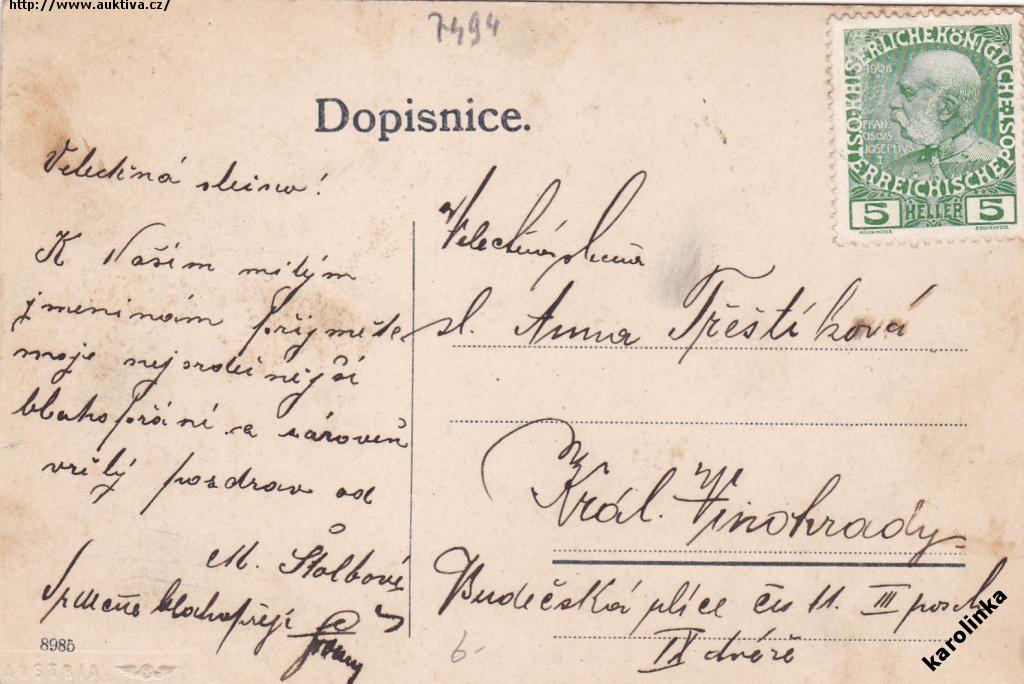 http://www.auktiva.cz/
7494
Dopisnice.
1908
FRAN
CISCVS
JOSEPHVS
I
KAISERLICHEKÖNIGLICHE
ÖSTERREICHISCHE POST
5 HELLER 5
Velectěná slečno!
K Vašim milým
jmeninám přijměte
moje nejsrdečnější
blahopřání a zároveň
vřelý pozdrav od
M. Štolbové
Srdečně blahopřejí
8985
Velectěná slečna
sl. Anna Třeštíková
Král. Vinohrady
Budečská ulice čís 11. III posch
IX dvéře
6-
karolinka